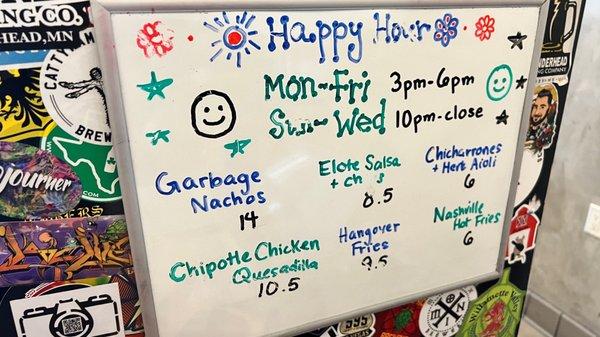 Happy Hour
Mon-Fri 3pm-6pm
Sun-Wed 10pm-close
Garbage
Nachos
14
Elote Salsa
8.5
Chicharrones
+ Herb Aioli
6
Chipotle Chicken
Quesadilla
10.5
Hangover
Fries
9.5
Nashville
Hot Fries
6
NG CO.
HEAD, MN
BREWE
Yourner
595